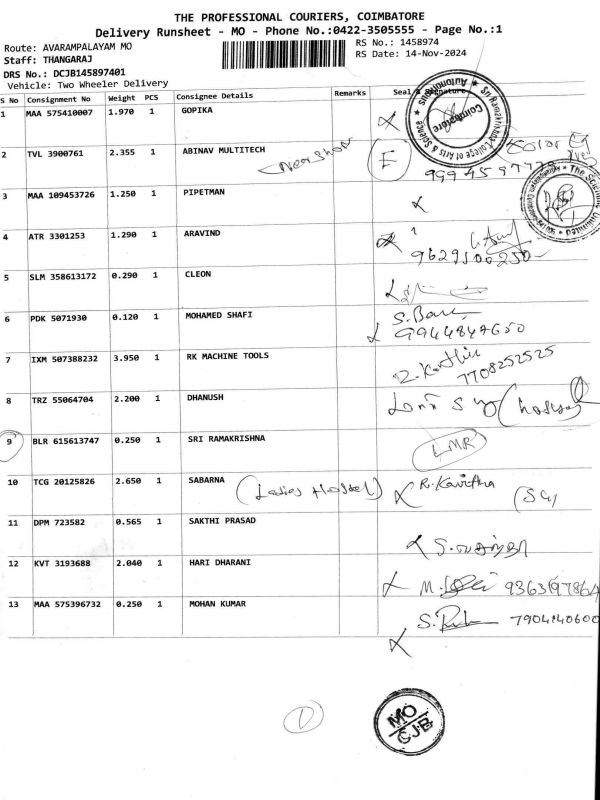 THE PROFESSIONAL COURIERS, COIMBATORE
Delivery Runsheet - MO - Phone No.:0422-3505555 - Page No.:1
Route: AVARAMPALAYAM MO
RS No.: 1458974
Staff: THANGARAJ
RS Date: 14-Nov-2024
DRS No.: DCJB145897401
Vehicle: Two Wheeler Delivery
S No Consignment No Weight PCS Consignee Details Remarks Seal & Signature
1 MAA 575410007 1.970 1 GOPIKA
Sri Ramakrishna College of Arts & Science
Autonomous
Coimbatore
2 TVL 3900761 2.355 1 ABINAV MULTITECH
E
3 MAA 109453726 1.250 1 PIPETMAN
4 ATR 3301253 1.290 1 ARAVIND
9629500250
5 SLM 358613172 0.290 1 CLEON
6 PDK 5071930 0.120 1 MOHAMED SHAFI
7 IXM 507388232 3.950 1 RK MACHINE TOOLS
7708252525
8 TRZ 55064704 2.200 1 DHANUSH
9 BLR 615613747 0.250 1 SRI RAMAKRISHNA
LMR
10 TCG 20125826 2.650 1 SABARNA (Ladies Hostel) R. Kavitha
11 DPM 723582 0.565 1 SAKTHI PRASAD
12 KVT 3193688 2.040 1 HARI DHARANI
13 MAA 575396732 0.250 1 MOHAN KUMAR
7904140600
MO
CJB